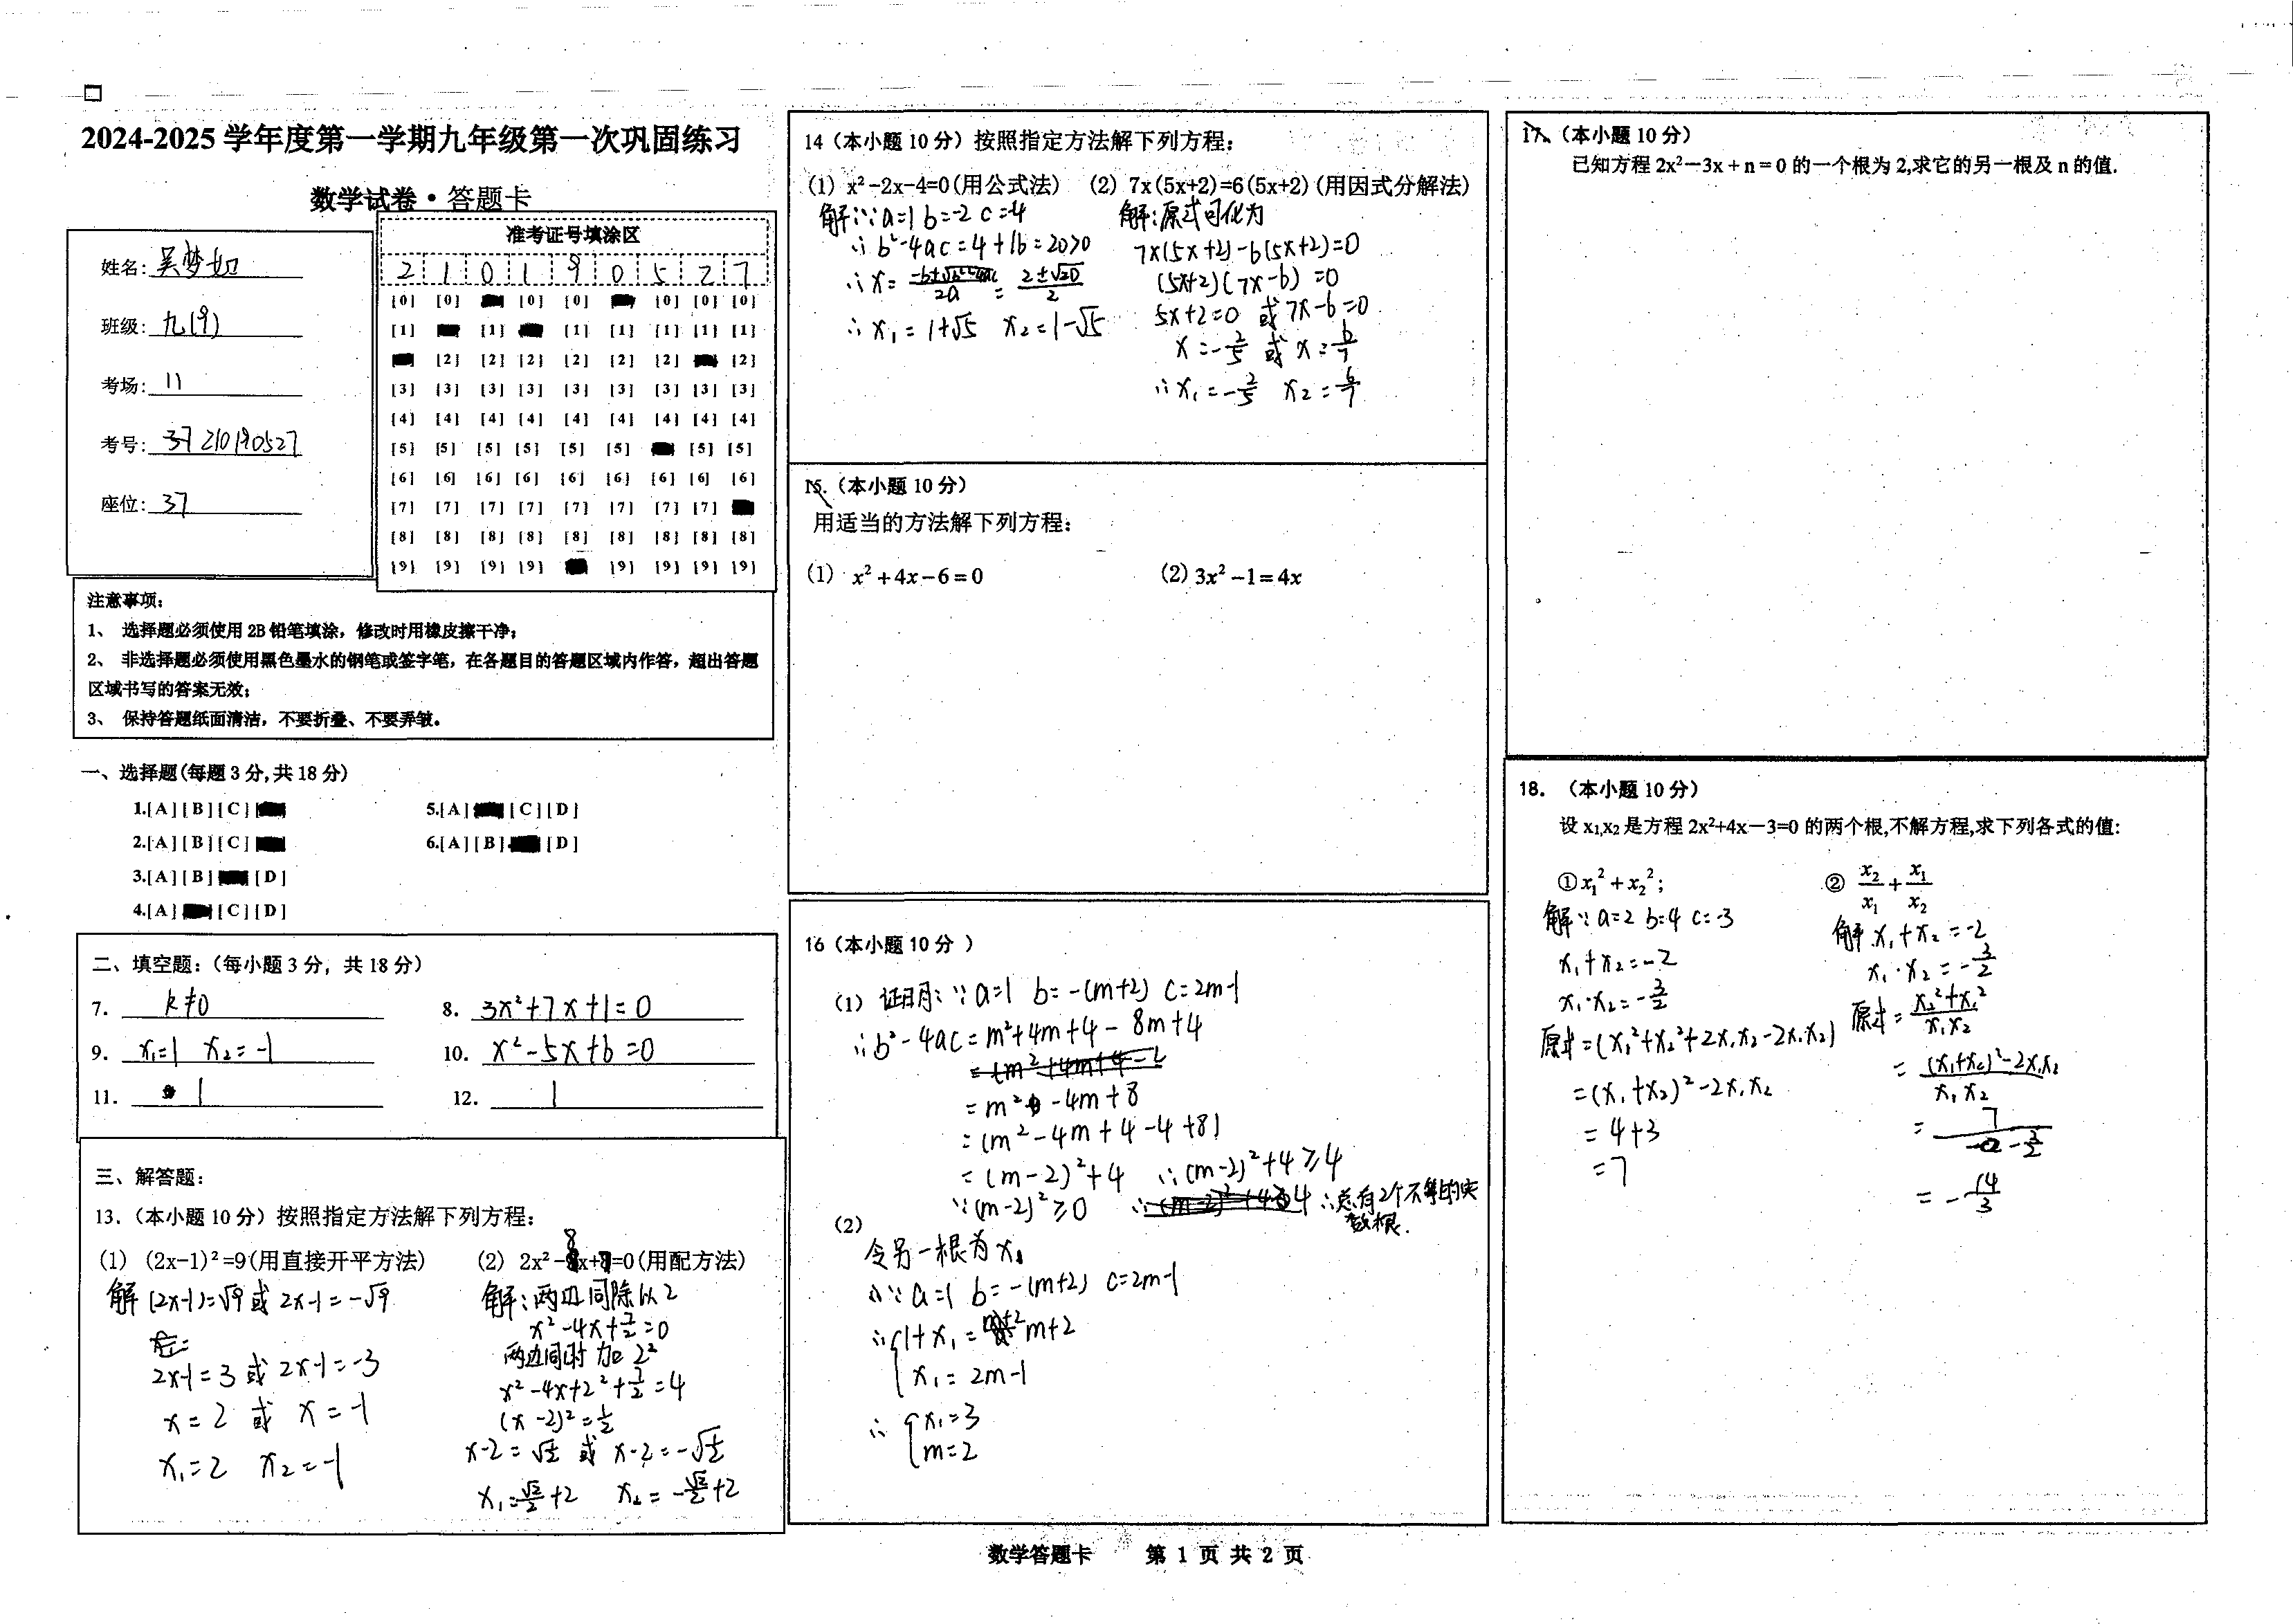 2024-2025 学年度第一学期九年级第一次巩固练习
数学试卷·答题卡
姓名: 吴梦如
班级: 九(9)
考场: 11
考号: 37 210190527
座位: 37
准考证号填涂区
2 1 0 1 9 0 5 2 7
[0] [0] [0] [0] [0] [0] [0]
[1] [1] [1] [1] [1] [1] [1]
[2] [2] [2] [2] [2] [2] [2]
[3] [3] [3] [3] [3] [3] [3] [3] [3]
[4] [4] [4] [4] [4] [4] [4] [4] [4]
[5] [5] [5] [5] [5] [5] [5] [5]
[6] [6] [6] [6] [6] [6] [6] [6] [6]
[7] [7] [7] [7] [7] [7] [7] [7]
[8] [8] [8] [8] [8] [8] [8] [8] [8]
[9] [9] [9] [9] [9] [9] [9] [9]
注意事项:
1、 选择题必须使用 2B 铅笔填涂，修改时用橡皮擦干净;
2、 非选择题必须使用黑色墨水的钢笔或签字笔，在各题目的答题区域内作答，超出答题
区域书写的答案无效;
3、 保持答题纸面清洁，不要折叠、不要弄皱。
一、选择题(每题 3 分,共 18 分)
1.[A][B][C]
5.[A] [C][D]
2.[A][B][C]
6.[A][B] [D]
3.[A][B] [D]
4.[A] [C][D]
二、填空题:（每小题 3 分，共 18 分）
7. k≠0
8. 3x²+7x+1=0
9. x₁=1 x₂=-1
10. x²-5x+6=0
11. 1
12. 1
三、解答题:
13.（本小题 10 分）按照指定方法解下列方程:
(1) (2x-1)²=9(用直接开平方法)
解 (2x-1)=√9 或 2x-1=-√9
2x-1=3 或 2x-1=-3
x=2 或 x=-1
x₁=2 x₂=-1
(2) 2x²-8x+7=0(用配方法)
解:两边同除以2
x²-4x+7/2=0
两边同时加 2²
x²-4x+2²+7/2=4
(x-2)²=1/2
x-2=√1/2 或 x-2=-√1/2
x₁=√2/2+2 x₂=-√2/2+2
14（本小题 10 分）按照指定方法解下列方程:
(1) x²-2x-4=0(用公式法)
解:∵a=1 b=-2 c=-4
∴b²-4ac=4+16=20>0
∴x=-b±√b²-4ac/2a = 2±√20/2
∴x₁=1+√5 x₂=1-√5
(2) 7x(5x+2)=6(5x+2)(用因式分解法)
解:原式可化为
7x(5x+2)-6(5x+2)=0
(5x+2)(7x-6)=0
5x+2=0 或 7x-6=0
x=-2/5 或 x=6/7
∴x₁=-2/5 x₂=6/7
15.（本小题 10 分）
用适当的方法解下列方程:
(1) x²+4x-6=0
(2) 3x²-1=4x
16（本小题 10 分 ）
(1) 证明:∵a=1 b=-(m+2) c=2m-1
∴b²-4ac=m²+4m+4-8m+4
=m²-4m+8
=(m²-4m+4-4+8)
=(m-2)²+4 ∴(m-2)²+4≥4
∵(m-2)²≥0 ∴总有2个不等的实
数根.
(2)
令另一根为x₁
∵a=1 b=-(m+2) c=2m-1
∴{1+x₁=m+2
x₁=2m-1
∴{x₁=3
m=2
17、（本小题 10 分）
已知方程 2x²－3x + n = 0 的一个根为 2,求它的另一根及 n 的值.
18. （本小题 10 分）
设 x₁,x₂ 是方程 2x²+4x－3=0 的两个根,不解方程,求下列各式的值:
①x₁²+x₂²;
解∵a=2 b=4 c=-3
x₁+x₂=-2
x₁·x₂=-3/2
原式=(x₁²+x₂²+2x₁x₂-2x₁x₂)
=(x₁+x₂)²-2x₁x₂
=4+3
=7
② x₂/x₁+x₁/x₂
解 x₁+x₂=-2
x₁·x₂=-3/2
原式=x₂²+x₁²/x₁x₂
=(x₁+x₂)²-2x₁x₂/x₁x₂
=7/-3/2
=-14/3
数学答题卡 第 1 页 共 2 页